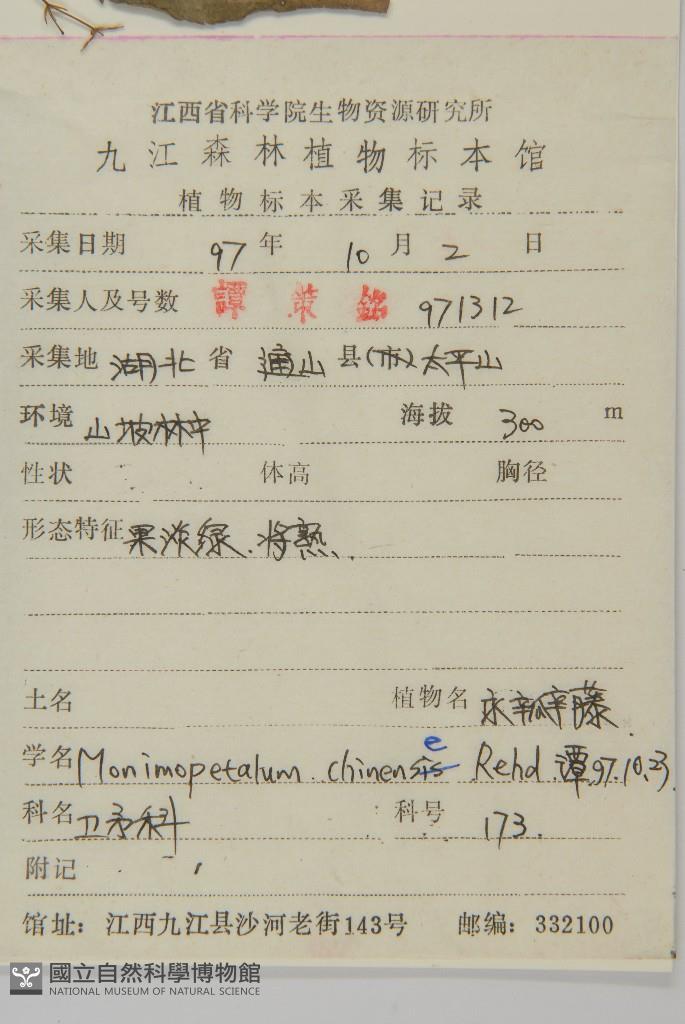 江西省科学院生物资源研究所
九江森林植物标本馆
植物标本采集记录
采集日期 97 年 10 月 2 日
采集人及号数 譚策銘 971312
采集地 湖北 省 通山 县(市)太平山
环境 山坡林中 海拔 300 m
性状 体高 胸径
形态特征 果淡绿、将熟、
土名 植物名 永瓣藤
学名 Monimopetalum chinense Rehd 譚97.10.23.
科名 卫矛科 科号 173.
附记
馆址：江西九江县沙河老街143号 邮编：332100
國立自然科學博物館
NATIONAL MUSEUM OF NATURAL SCIENCE